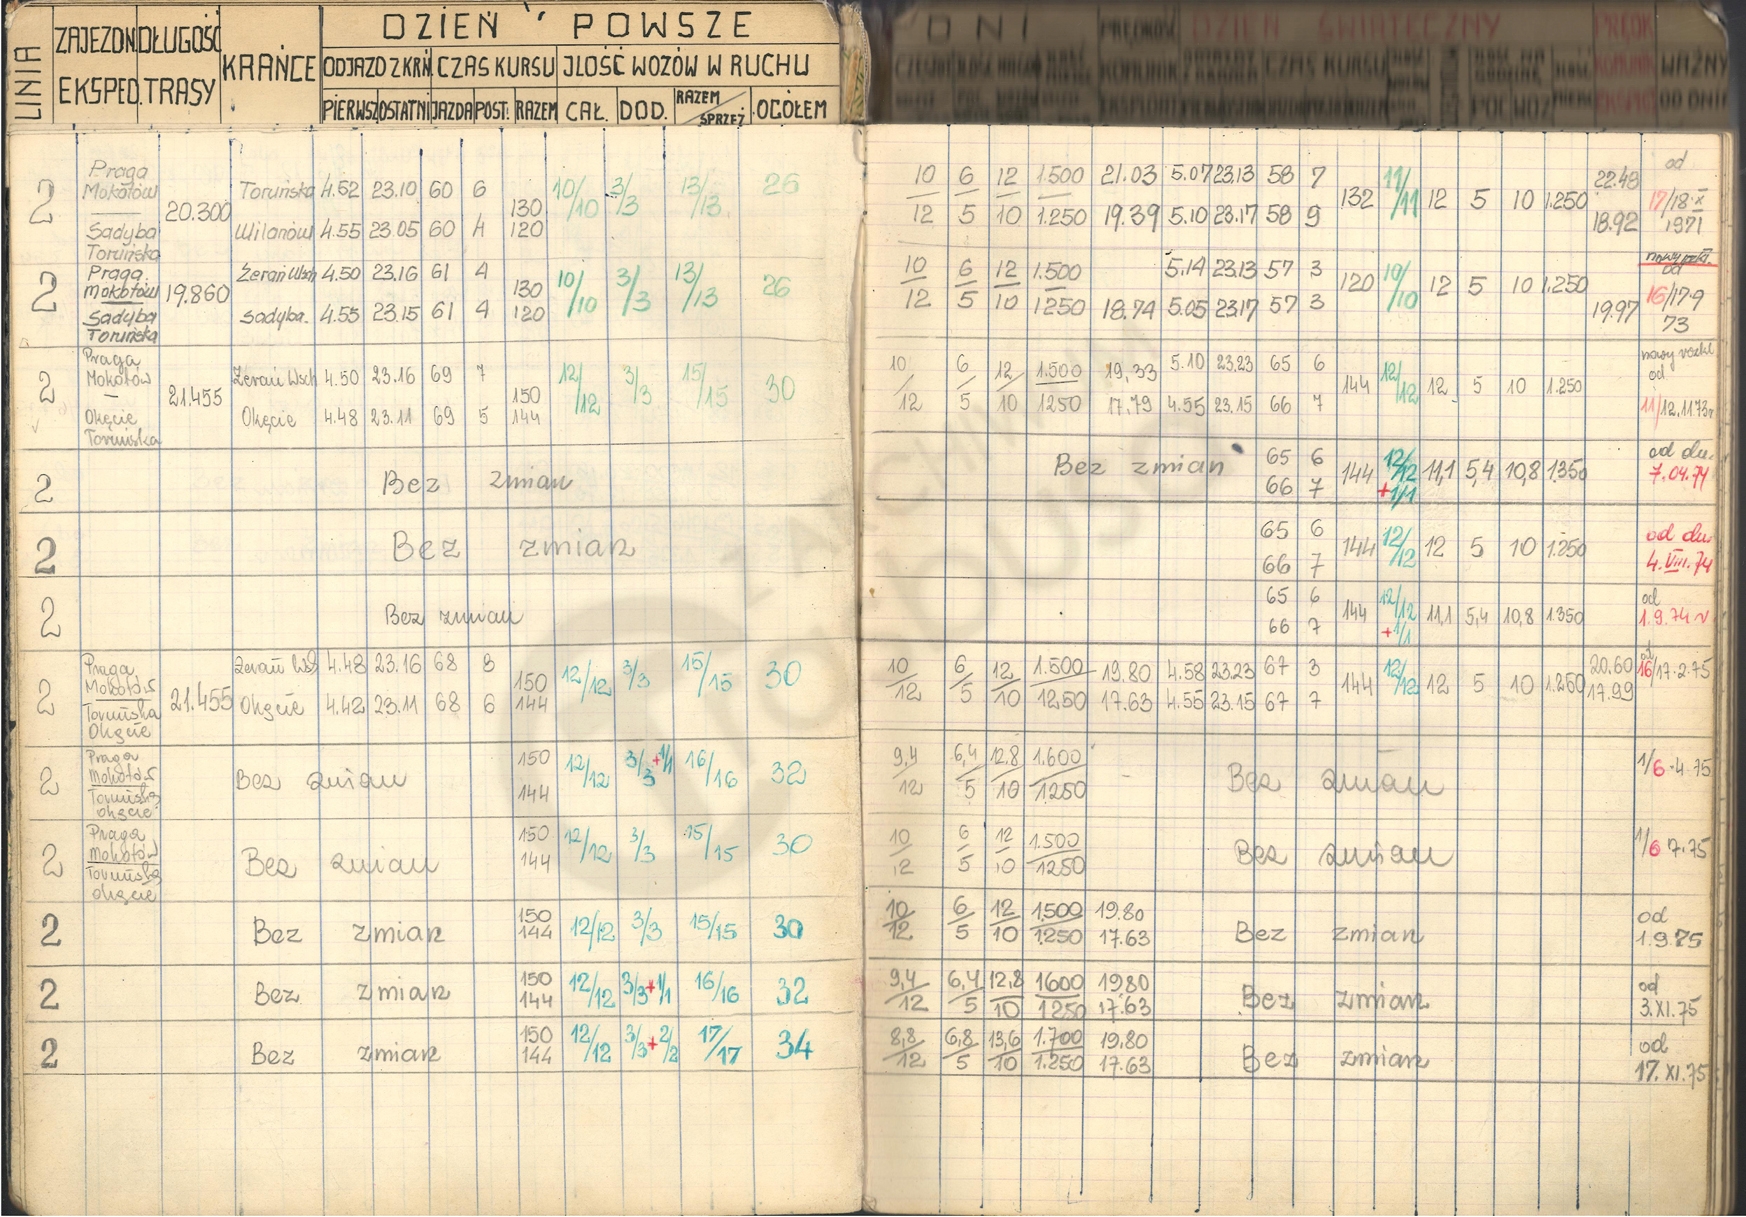 LINIA
ZAJEZDN. EKSPED.
DŁUGOŚĆ TRASY
KRAŃCE
DZIEŃ POWSZE
ODJAZD Z KRŃ. CZAS KURSU JLOŚĆ WOZÓW W RUCHU
PIERWSZ OSTATNI JAZDA POST. RAZEM CAŁ. DOD. RAZEM / SPRZĘŻ OGÓŁEM
DNI DZIEŃ ŚWIĄTECZNY
CZAS KURSU
WAŻNY
OD DNIA
2 Praga Mokotów 20.300 Toruńska 4.52 23.10 60 6 130 10/10 3/3 13/13 26 10 6 12 1.500 21.03 5.07 23.13 58 7 132 11/11 12 5 10 1.250 22.48 od 17/18.X
Sadyba Toruńska Wilanów 4.55 23.05 60 4 120 12 5 10 1.250 19.39 5.10 23.17 58 9 18.92 1971
2 Praga Mokotów 19.860 Żerań Wsch 4.50 23.16 61 4 130 10/10 3/3 13/13 26 10 6 12 1.500 5.14 23.13 57 3 120 10/10 12 5 10 1.250 od 16/17.9
Sadyba Toruńska Sadyba. 4.55 23.15 61 4 120 12 5 10 1250 18.74 5.05 23.17 57 3 19.97 73
2 Praga Mokotów 21.455 Żerań Wsch 4.50 23.16 69 7 150 12/12 3/3 15/15 30 10 6 12 1.500 19,33 5.10 23.23 65 6 144 12/12 12 5 10 1.250 nowy rozkł od
Okęcie Toruńska Okęcie 4.48 23.11 69 5 144 12 5 10 1250 17.79 4.55 23.15 66 7 11/12.11 73r
2 Bez zmian Bez zmian 65 6 144 12/12 11,1 5,4 10,8 1350 od dn.
66 7 +1/1 7.04.74
2 Bez zmian 65 6 144 12/12 12 5 10 1.250 od dn
66 7 4.VIII.74
2 Bez zmian 65 6 144 12/12 11,1 5,4 10,8 1.350 od
66 7 +1/1 1.9.74 r
2 Praga Mokotów 21.455 Żerań Wsch 4.48 23.16 68 8 150 12/12 3/3 15/15 30 10 6 12 1.500 19.80 4.58 23.23 67 3 144 12/12 12 5 10 1.250 20.60 od 16/17.2.75
Toruńska Okęcie Okęcie 4.42 23.11 68 6 144 12 5 10 1250 17.63 4.55 23.15 67 7 17.99
2 Praga Mokotów Bez zmian 150 12/12 3/3 +1/1 16/16 32 9,4 6,4 12,8 1.600 - Bez zmian 1/6.4.75
Toruńska Okęcie 144 12 5 10 1250
2 Praga Mokotów Bez zmian 150 12/12 3/3 15/15 30 10 6 12 1.500 Bez zmian 1/6 7.75
Toruńska Okęcie 144 12 5 10 1250
2 Bez zmian 150 12/12 3/3 15/15 30 10 6 12 1.500 19.80 Bez zmian od
144 12 5 10 1.250 17.63 1.9.75
2 Bez zmian 150 12/12 3/3+1/1 16/16 32 9,4 6,4 12,8 1600 19.80 Bez zmian od
144 12 5 10 1250 17.63 3.XI.75
2 Bez zmian 150 12/12 3/3+2/2 17/17 34 8,8 6,8 13,6 1.700 19.80 Bez zmian od
144 12 5 10 1.250 17.63 17.XI.75